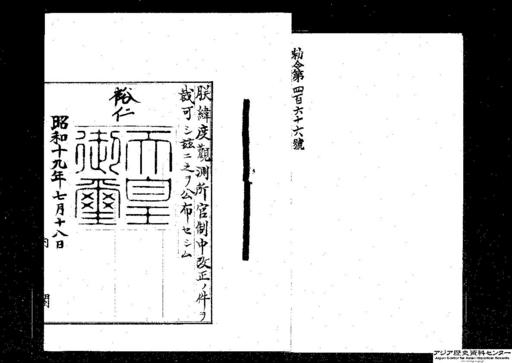 勅令第四百六十六號
朕緯度觀測所官制中改正ノ件ヲ
裁可シ玆ニ之ヲ公布セシム
裕仁
天皇
御璽
昭和十九年七月十八日
内閣
アジア歴史資料センター
Japan Center for Asian Historical Records